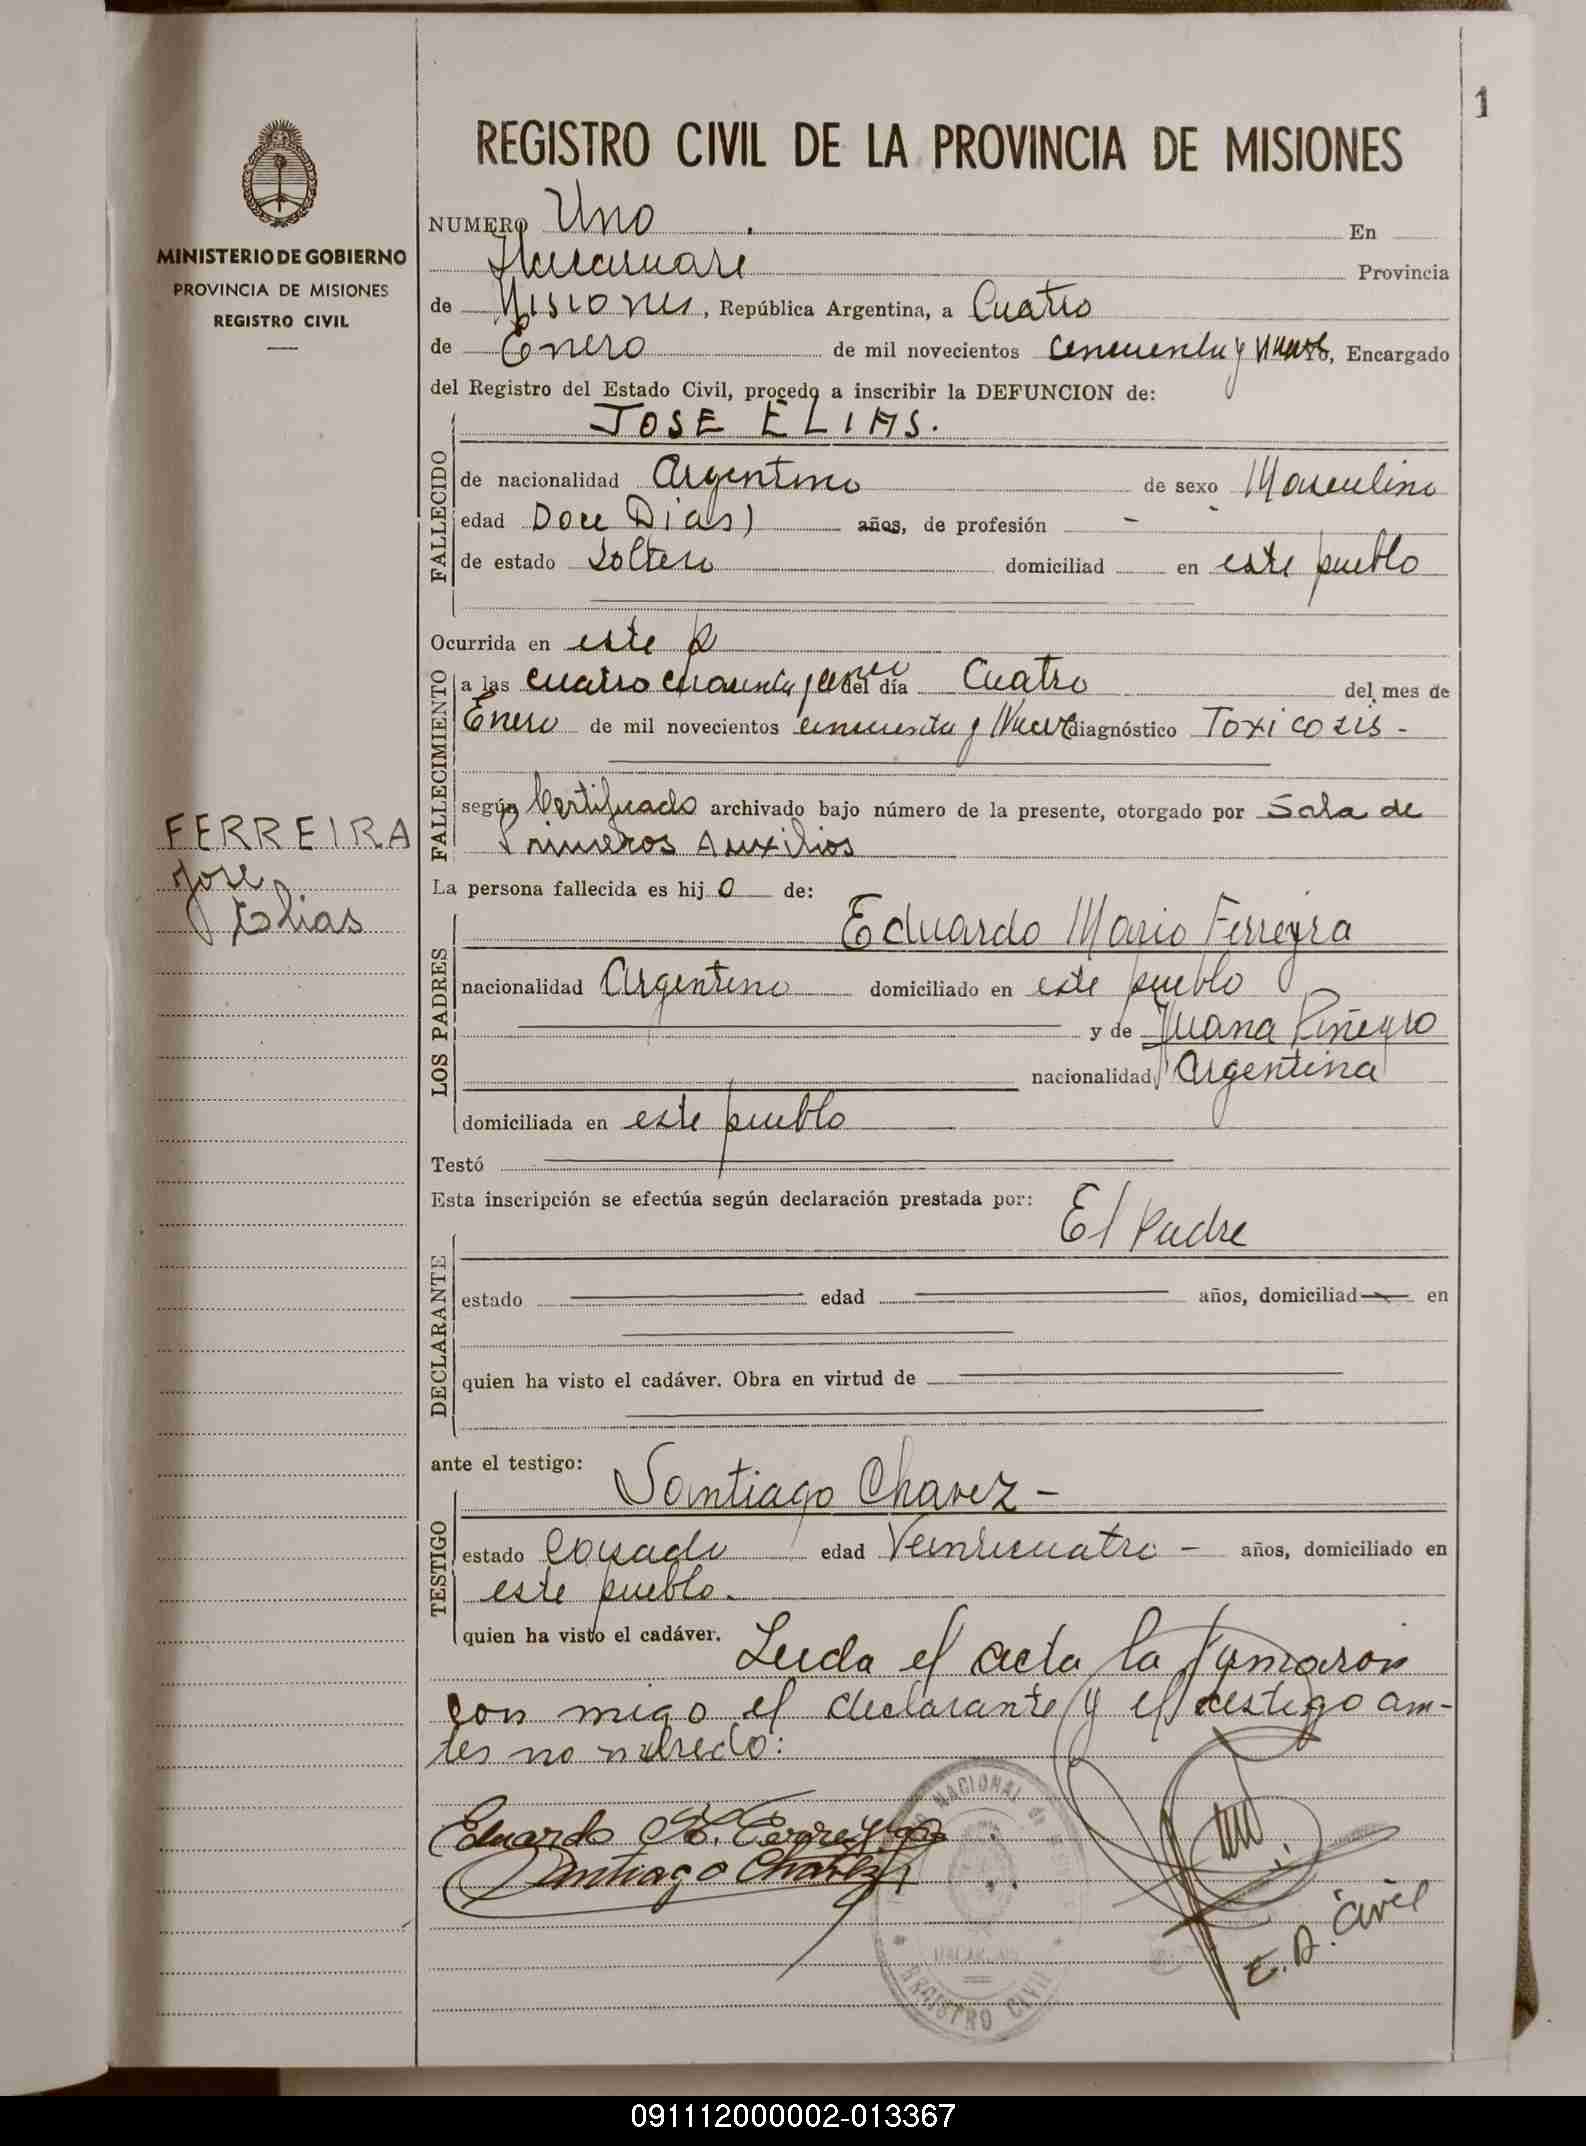 1
REGISTRO CIVIL DE LA PROVINCIA DE MISIONES
MINISTERIO DE GOBIERNO
PROVINCIA DE MISIONES
REGISTRO CIVIL
NUMERO Uno En
Provincia
de Misiones, República Argentina, a Cuatro
de Enero de mil novecientos cincuenta y nueve, Encargado
del Registro del Estado Civil, procedo a inscribir la DEFUNCION de:
JOSE ELIAS.
FALLECIDO
de nacionalidad Argentino de sexo Masculino
edad Doce Dias) años, de profesión -
de estado Soltero domiciliad en este pueblo
Ocurrida en este p
FALLECIMIENTO
a las cuatro cuarenta y del día Cuatro del mes de
Enero de mil novecientos cincuenta y Nueve diagnóstico Toxicosis -
según Certificado archivado bajo número de la presente, otorgado por Sala de
Primeros Auxilios
FERREIRA
Jose
Elias
La persona fallecida es hij o de:
LOS PADRES
Eduardo Mario Ferreyra
nacionalidad Argentino domiciliado en este pueblo
y de Juana Piñeyro
nacionalidad Argentina
domiciliada en este pueblo
Testó
Esta inscripción se efectúa según declaración prestada por:
El Padre
DECLARANTE
estado edad años, domiciliad en
quien ha visto el cadáver. Obra en virtud de
ante el testigo:
Santiago Chavez -
TESTIGO
estado Casado edad Veinticuatro - años, domiciliado en
este pueblo.
quien ha visto el cadáver. Leida el acta la firmaron
con migo el declarante y el testigo an-
tes no
Eduardo M. Ferreyra
Santiago Chavez
NACIONAL
REGISTRO CIVIL
E. R. Civil
091112000002-013367